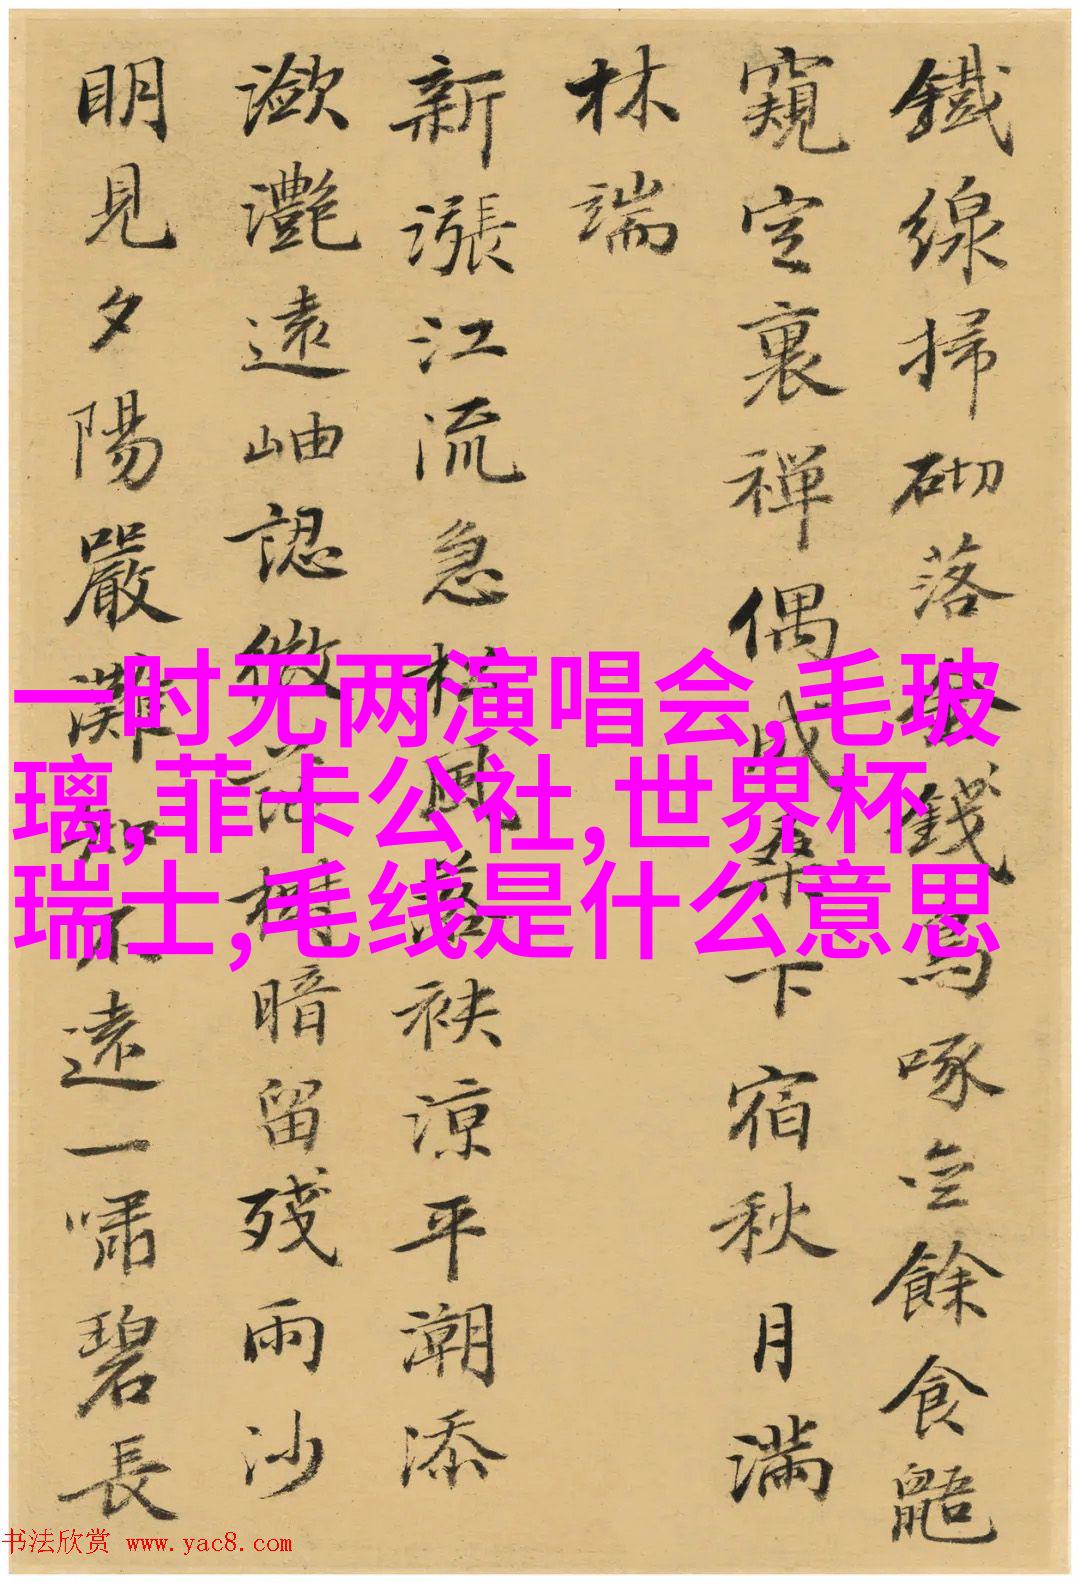 鐵線掃砌落錢鳥啄餘食鼯
窺定裏禪偶成桑下宿秋月滿
林端
新漲江流急風落袂涼平潮添
瀲灧遠岫認微茫樹暗留殘雨沙
明見夕陽嚴灘知不遠一嘯碧長
一时无两演唱会,毛玻
璃,菲卡公社,世界杯
瑞士,毛线是什么意思
书法欣赏 www.yac8.com